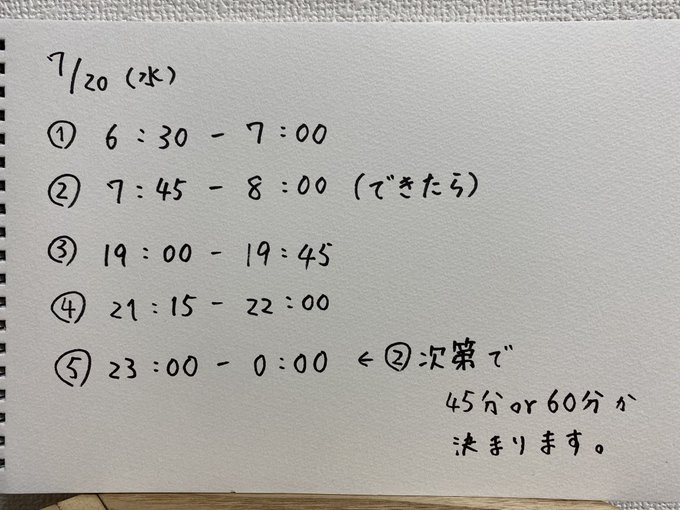 7/20 (水)
① 6:30 - 7:00
② 7:45 - 8:00 (できたら)
③ 19:00 - 19:45
④ 21:15 - 22:00
⑤ 23:00 - 0:00 ← ②次第で
45分or60分か
決まります。